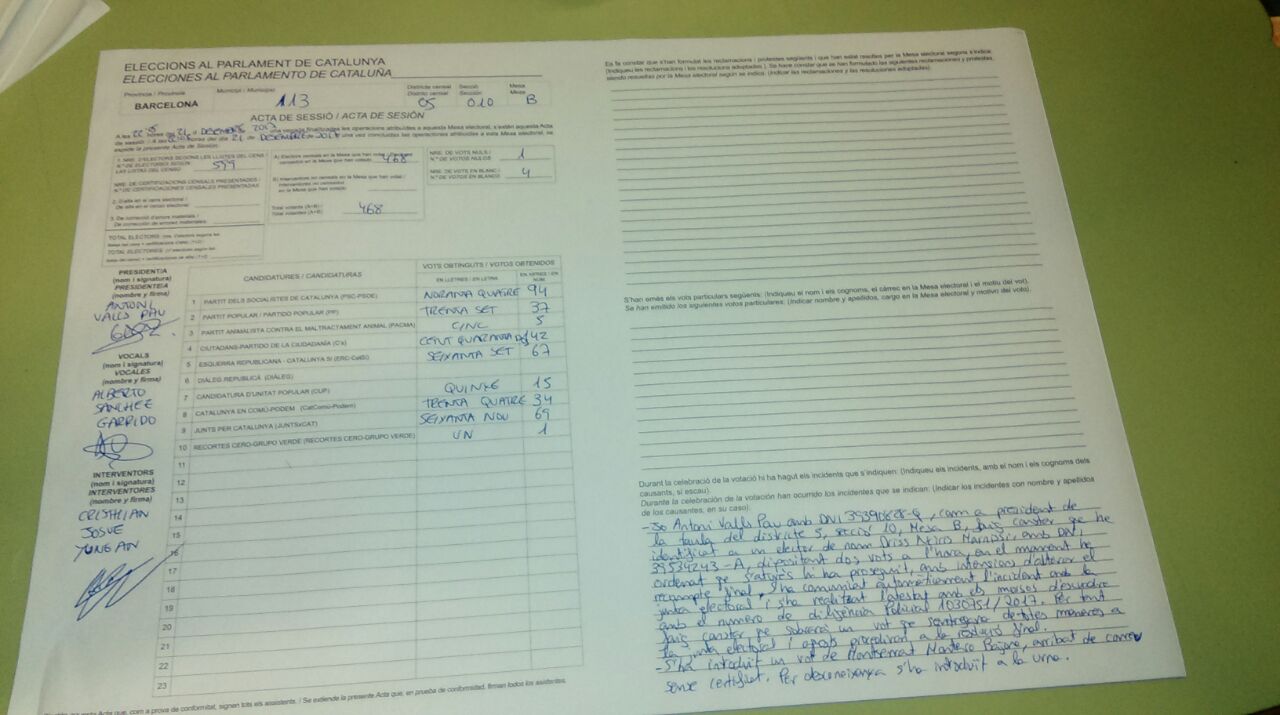 ELECCIONS AL PARLAMENT DE CATALUNYA
ELECCIONES AL PARLAMENTO DE CATALUÑA
Província / Provincia
BARCELONA
Municipi / Municipio
113
Districte censal
Distrito censal
05
Secció
Sección
010
Mesa
Mesa
B
ACTA DE SESSIÓ / ACTA DE SESIÓN
A les hores del 21 d DESEMBRE 2017 una vegada finalitzades les operacions atribuïdes a aquesta Mesa electoral, s'estén aquesta Acta
de sessió. / A las horas del día 21 de DESEMBRE de 2017 una vez concluidas las operaciones atribuidas a esta Mesa electoral, se
expide la presente Acta de Sesión.
1. NRE. D'ELECTORS SEGONS LES LLISTES DEL CENS /
N.º DE ELECTORES SEGÚN
LAS LISTAS DEL CENSO
599
NRE. DE CERTIFICACIONS CENSALS PRESENTADES /
N.º DE CERTIFICACIONES CENSALES PRESENTADAS
2. D'alta en el cens electoral /
De alta en el censo electoral
3. De correcció d'errors materials /
De corrección de errores materiales
TOTAL ELECTORS
TOTAL ELECTORES
A) Electors censats en la Mesa que han votat / Electores
censados en la Mesa que han votado
468
B) Interventors no censats en la Mesa que han votat /
Interventores no censados
en la Mesa que han votado
Total votants (A+B) /
Total votantes (A+B)
468
NRE. DE VOTS NULS /
N.º DE VOTOS NULOS
1
NRE. DE VOTS EN BLANC /
N.º DE VOTOS EN BLANCO
4
PRESIDENT/A
(nom i signatura)
PRESIDENTE/A
(nombre y firma)
ANTONI
VALLS PAU
VOCALS
(nom i signatura)
VOCALES
(nombre y firma)
ALBERTO
SANCHEZ
GARRIDO
INTERVENTORS
(nom i signatura)
INTERVENTORES
(nombre y firma)
CRISTHIAN
JOSUE
YUNGAN
CANDIDATURES / CANDIDATURAS
VOTS OBTINGUTS / VOTOS OBTENIDOS
EN LLETRES / EN LETRA
EN XIFRES / EN NÚM
1 PARTIT DELS SOCIALISTES DE CATALUNYA (PSC-PSOE) NORANTA QUATRE 94
2 PARTIT POPULAR / PARTIDO POPULAR (PP) TRENTA SET 37
3 PARTIT ANIMALISTA CONTRA EL MALTRACTAMENT ANIMAL (PACMA) CINC 5
4 CIUTADANS-PARTIDO DE LA CIUDADANÍA (C's) CENT QUARANTA DOS 142
5 ESQUERRA REPUBLICANA - CATALUNYA SÍ (ERC-CatSí) SEIXANTA SET 67
6 DIÀLEG REPUBLICÀ (DIÀLEG)
7 CANDIDATURA D'UNITAT POPULAR (CUP) QUINZE 15
8 CATALUNYA EN COMÚ-PODEM (CatComú-Podem) TRENTA QUATRE 34
9 JUNTS PER CATALUNYA (JUNTSxCAT) SEIXANTA NOU 69
10 RECORTES CERO-GRUPO VERDE (RECORTES CERO-GRUPO VERDE) UN 1
11
12
13
14
15
16
17
18
19
20
21
22
23
aquesta Acta que, com a prova de conformitat, signen tots els assistents. / Se extiende la presente Acta que, en prueba de conformidad, firman todos los asistentes.
Es fa constar que s'han formulat les reclamacions i protestes següents i que han estat resoltes per la Mesa electoral segons s'indica:
(Indiqueu les reclamacions i les resolucions adoptades). Se hace constar que se han formulado las siguientes reclamaciones y protestas,
siendo resueltas por la Mesa electoral según se indica: (Indicar las reclamaciones y las resoluciones adoptadas).
S'han emès els vots particulars següents: (Indiqueu el nom i els cognoms, el càrrec en la Mesa electoral i el motiu del vot).
Se han emitido los siguientes votos particulares: (Indicar nombre y apellidos, cargo en la Mesa electoral y motivo del voto).
Durant la celebració de la votació hi ha hagut els incidents que s'indiquen: (Indiqueu els incidents, amb el nom i els cognoms dels
causants, si escau).
Durante la celebración de la votación han ocurrido los incidentes que se indican: (Indicar los incidentes con nombre y apellidos
de los causantes, en su caso):
- Jo Antoni Valls Pau amb DNI 39390828-Q, com a president de
la taula del districte 5, secció 10, Mesa B, faig constar que he
identificat a un elector de nom Driss amb DNI
39534243-A, dipositant dos vots a l'hora, en el moment he
ordenat que s'aturés hi ha proseguit, amb intensions d'alterar el
recompte final. S'ha comunicat automàticament l'incident amb la
junta electoral i s'ha realitzat l'atestat amb els mossos d'esquadra
amb el numero de diligència Policial 1030751/2017. Per tant
faig constar que sobrerà un vot que de totes maneres a
la junta electoral i apoyi a la resolució final.
- S'ha introduït un vot de Montserrat Montero arribat de correu
sense certificat. Per desconeixença s'ha introduït a la urna.